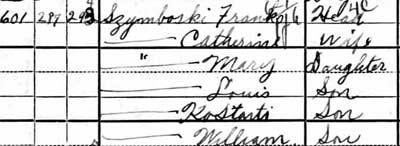 601 289 293 Szymboski Frank Head
— Catherine Wife
" — Mary Daughter
— Louis Son
— Kostanti Son
— William Son